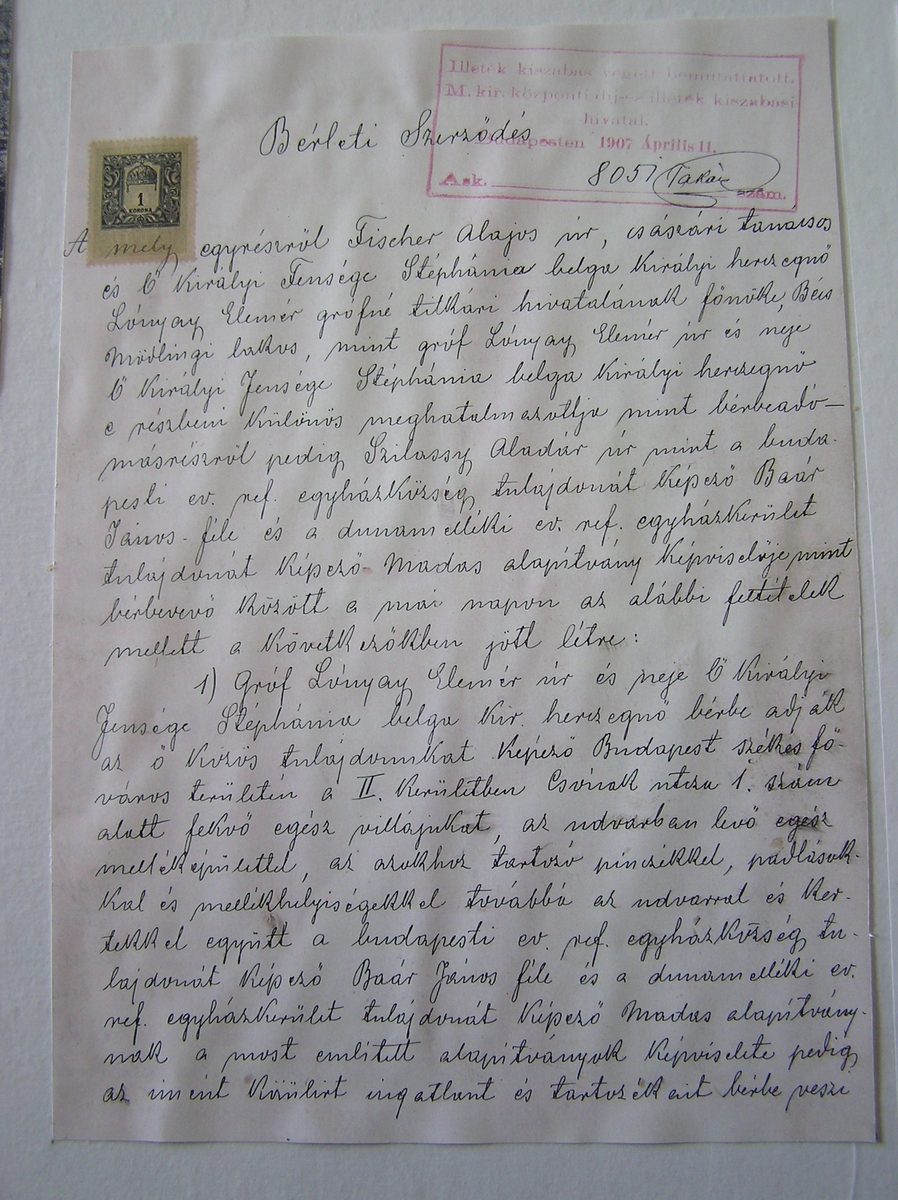 Illeték kiszabás végett bemutattatott.
M. kir. központi díj- s illeték kiszabási
hivatal.
Budapesten 1907 Április 11.
A sk. 8051 Takár szám.
Bérleti Szerződés
1
KORONA
A mely egyrészről Fischer Alajos úr, császári tanácsos
és Ő Királyi Fensége Stéphánia belga Királyi herczegnő
Lónyay Elemér grófné titkári hivatalának főnöke, Bécs
Mödlingi lakos, mint gróf Lónyay Elemér úr és neje
Ő Királyi Fensége Stéphánia belga Királyi herczegnő
e részbeni Különös meghatalmazottja mint bérbeadó—
másrészről pedig Szilassy Aladár úr mint a buda-
pesti ev. ref. egyházközség tulajdonát Képező Baár
János-féle és a dunamelléki ev. ref. egyházkerület
tulajdonát Képező Madas alapítvány Képviselője, mint
bérbevevő között a mai napon az alábbi feltételek
mellett a Következőkben jött létre:
1) Gróf Lónyay Elemér úr és neje Ő Királyi
Fensége Stéphánia belga Kir. herczegnő bérbe adják
az ő Közös tulajdonukat Képező Budapest székes fő-
város területén a II. Kerületben Csónak utcza 1. szám
alatt fekvő egész villájukat, az udvarban levő egész
melléképülettel, az azokhoz tartozó pinczékkel, padlások-
kal és mellékhelyiségekkel továbbá az udvarral és Ker-
tekkel együtt a budapesti ev. ref. egyházközség tu-
lajdonát Képező Baár János féle és a dunamelléki ev.
ref. egyházkerület tulajdonát Képező Madas alapítvány-
nak a most említett alapítványok Képviselete pedig
az imént Körülírt ingatlant és tartozékait bérbe veszi